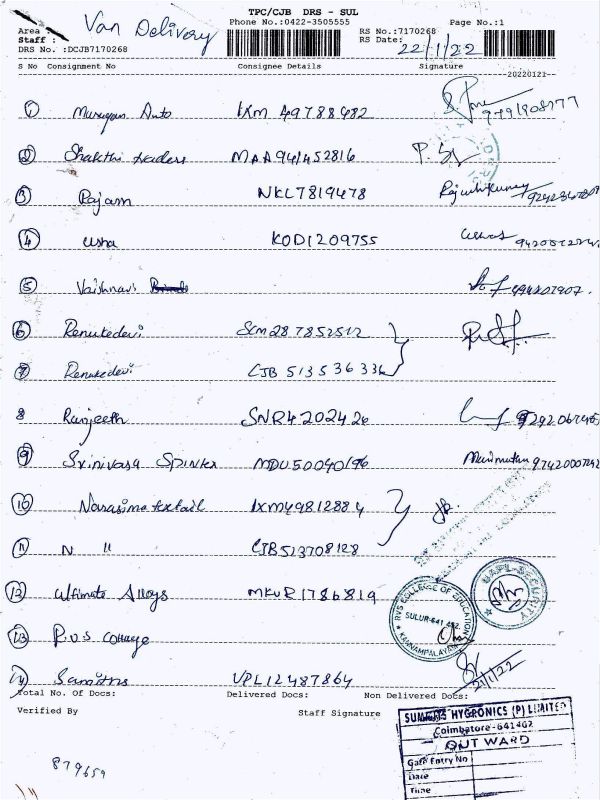 TPC/CJB DRS - SUL
Area : Van Delivery Phone No.:0422-3505555 Page No.:1
Staff : RS No.:7170268
DRS No. :DCJB7170268 RS Date: 22/1/22
S No Consignment No Consignee Details Signature
20220121
1 Murugan Auto IXM 49788482
2 Shakthi traders MAA941452816 P. Sv
3 Rajam NKL7819478
4 Usha KOD1209755
5 Vaishnavi
6 Renukedevi SCM287852512
7 Renukedevi CJB 513536336
8 Ranjeeth SNR4202426
9 Srinivasa Spintex MDU50040196
10 Narasima textail IXM49812884
11 N " CJB513708128
12 Ultimate Alloys MKUR1786819
13 P.V.S Cottage
14 Samithis VPL12487864 21/1/22
Total No. Of Docs: Delivered Docs: Non Delivered Docs:
Verified By Staff Signature
RVS COLLEGE OF EDUCATION
SULUR-641 402
KANNAMPALAYAM
UAPL-SECURITY
HYGRONICS (P) LIMITED
Coimbatore-641402
OUT WARD
Gate Entry No
Date
Time
879659